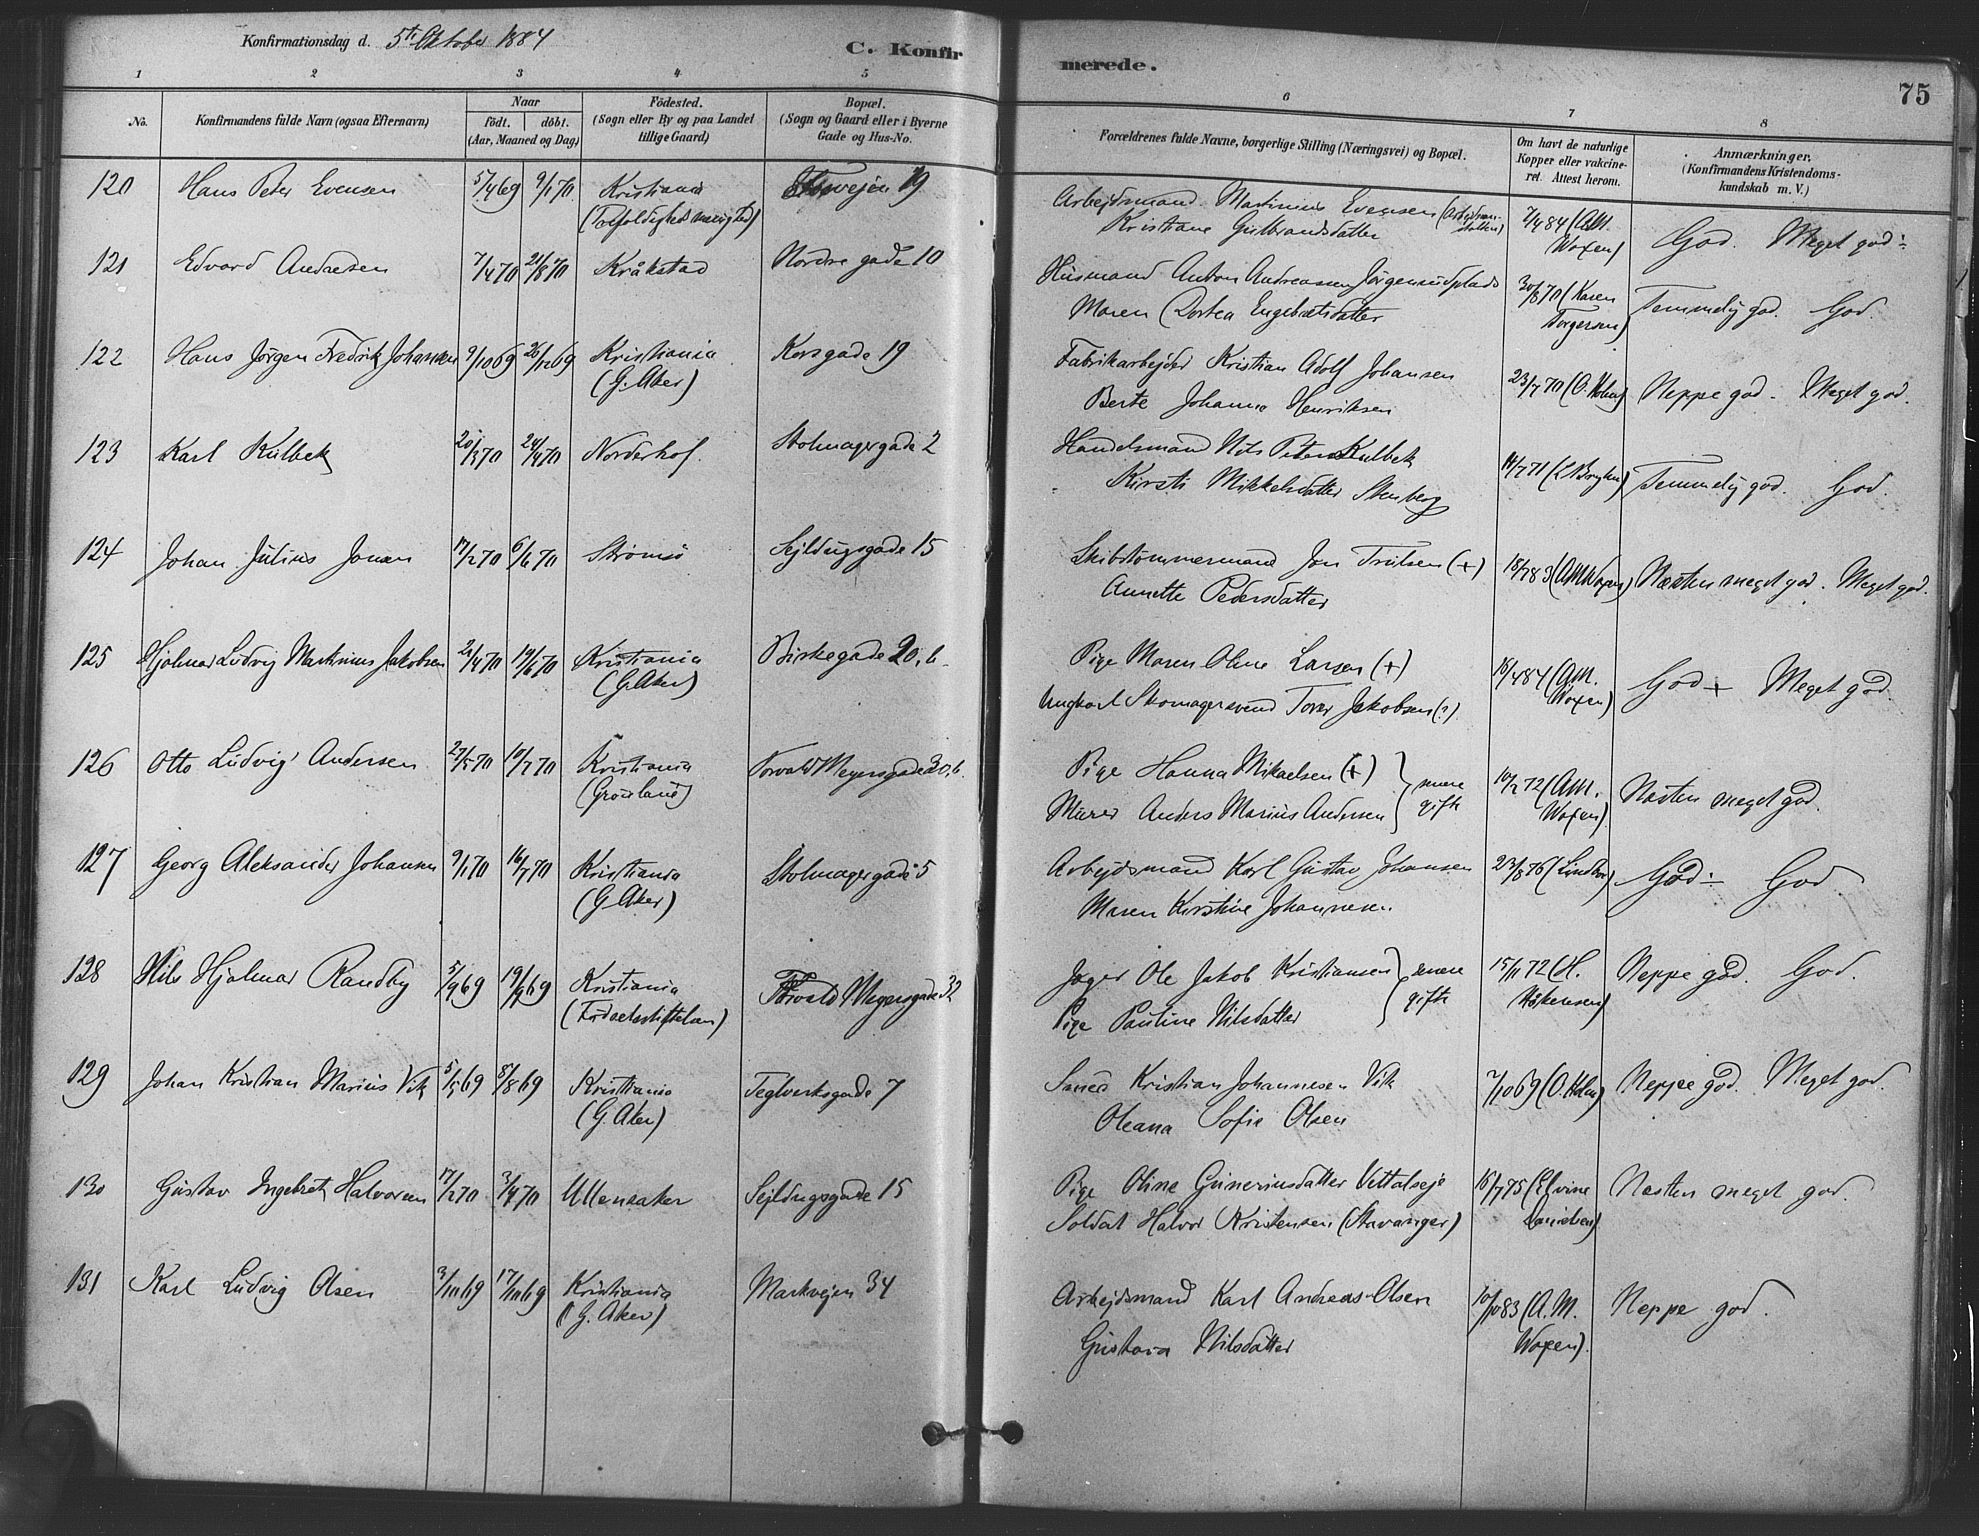 Konfirmationsdag d. 5te Oktober 1884
C. Konfirmerede.
75
1 2 3 4 5 6 7 8
No.
Konfirmandens fulde Navn (ogsaa Efternavn)
Naar
Födt. döbt.
(Aar, Maaned og Dag)
Födested.
(Sogn eller By og paa Landet
tillige Gaard)
Bopæl.
(Sogn og Gaard eller i Byerne
Gade og Hus-No.
Forældrenes fulde Navne, borgerlige Stilling (Næringsvei) og Bopæl.
Om havt de naturlige
Kopper eller vakcine-
ret. Attest herom.
Anmærkninger.
(Konfirmandens Kristendoms-
kundskab m. V.)
120 Hans Peter Evensen 5/4 69 9/1 70 Kristiania 19 Arbejdsmand Martinius Evensen 7/4 84 (A.M.
(Trefoldigheds menighed) Kristiane Gulbrandsdatter Woxen) God. Meget god ÷
121 Edvard Andresen 7/4 70 21/8 70 Kråkstad Nordre gade 10 Husmand Anton Andreassen Jørgensrudplads 30/8 70 (Karen
Maren Dortea Engebretsdatter Torgersen) Temmelig god. God.
122 Hans Jörgen Fredrik Johansen 9/10 69 26/12 69 Kristiania Korsgade 19 Fabrikarbejder Kristian Adolf Johansen 23/7 70 (O. Holm) Neppe god. Meget god.
(G. Aker) Berte Johanne Henriksen
123 Karl Kulbek 20/3 70 24/4 70 Norderhof. Stolmagergade 2 Handelsmand Nils Petersen Kulbek 14/7 71 Temmelig god. God.
Kirsti Mikkelsdatter Stenberg
124 Johan Julius Jonsen 17/2 70 6/6 70 Strömsö Sejldugsgade 15 Skibstömmermand Jon Trulsen (+) 18/7 83 (A.M. Woxen) Næsten meget god. Meget god.
Annette Pedersdatter
125 Hjalmar Ludvig Martinius Jakobsen 21/4 70 19/6 70 Kristiania Birkegade 20, b. Pige Maren Oline Larsen (+) 16/4 84 (A.M.
(G. Aker) Ungkarl Skomagersvend Tores Jakobsen (?) Woxen) God + Meget god
126 Otto Ludvig Andersen 27/5 70 10/7 70 Kristiania Torvald Meyersgade 30, b. Pige Hanna Mikaelsen (+) senere 10/2 72 (A.M.
(Grønland) Murer Anders Marius Andersen gifte Woxen) Næsten meget god.
127 Georg Aleksander Johansen 9/1 70 16/7 70 Kristiania Stolmagergade 5 Arbejdsmand Karl Gustav Johansen 23/8 76 God ÷ God
(G. Aker) Maren Kirstine Johannesen
128 Nils Hjalmar Randby 5/9 69 19/9 69 Kristiania Torvald Meyersgade 32 Jæger Ole Jakob Kristiansen senere 15/11 72 (H. Neppe god. God.
(Födselsstiftelsen) Pige Pauline Nilsdatter gifte Håkensen)
129 Johan Kristian Marius Vik 5/5 69 8/8 69 Kristiania Teglverksgade 7 Smed Kristian Johannesen Vik 7/10 69 (O. Holm) Neppe god. Meget god.
(G. Aker) Oleana Sofie Olsen
130 Gustav Ingebret Halvorsen 17/2 70 3/4 70 Ullensaker Sejldugsgade 15 Pige Oline Guneriusdatter 16/7 75 (Elvine Næsten meget god.
Soldat Halvor Kristensen (Stavanger) Danielsen)
131 Karl Ludvig Olsen 3/10 69 17/10 69 Kristiania Markvejen 34 Arbejdsmand Karl Andreas Olsen 10/10 83 (A.M. Neppe god.
(G. Aker) Gustava Nilsdatter Woxen).